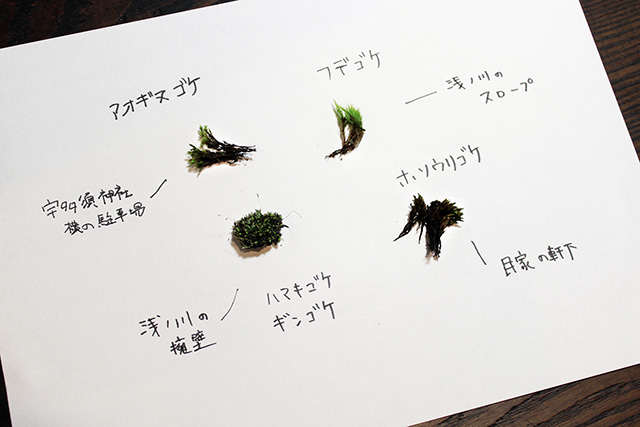 アオギヌゴケ
宇多須神社
横の駐車場
フデゴケ
浅ノ川の
スロープ
ホソウリゴケ
民家の軒下
ハマキゴケ
ギンゴケ
浅ノ川の
擁壁